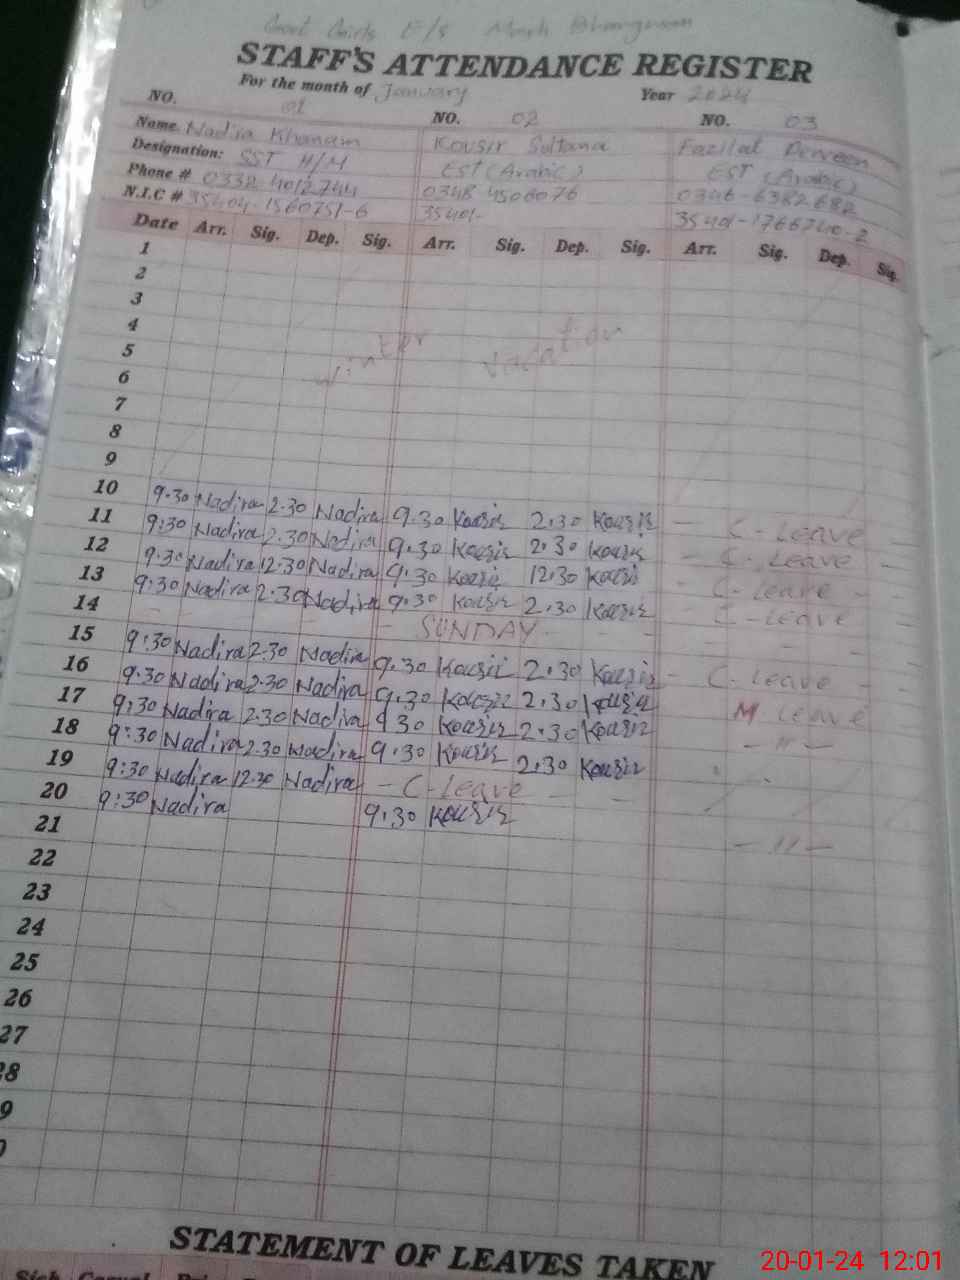 Govt Girls E/S
STAFF'S ATTENDANCE REGISTER
For the month of January Year 2024
NO. 01 NO. 02 NO. 03
Name. Nadira Khanam Kousir Sultana Fazilat Perveen
Designation: SST H/M EST (Arabic) EST (Arabic)
Phone # 0332-4012744 0348 4506076 0346-6382682
N.I.C # 35404-1560751-6 35401- 35401-1766740-2
Date Arr. Sig. Dep. Sig. Arr. Sig. Dep. Sig. Arr. Sig. Dep. Sig.
1
2
3
4 winter vacation
5
6
7
8
9
10 9.30 Nadira 2.30 Nadira 9.30 Kousir 2.30 Kousir - C-Leave
11 9:30 Nadira 2.30 Nadira 9.30 Kousir 2.30 Kousir - C-Leave -
12 9:30 Nadira 12.30 Nadira 9.30 Kousir 12.30 Kousir - C-Leave -
13 9:30 Nadira 2.30 Nadira 9.30 Kousir 2.30 Kousir - C-Leave -
14 - SUNDAY -
15 9:30 Nadira 2.30 Nadira 9.30 Kousir 2.30 Kousir - C-Leave -
16 9.30 Nadira 2.30 Nadira 9.30 Kousir 2.30 Kousir M. Leave
17 9.30 Nadira 2.30 Nadira 9 30 Kousir 2.30 Kousir - " -
18 9:30 Nadira 2.30 Nadira 9.30 Kousir 2.30 Kousir
19 9:30 Nadira 12.30 Nadira - C-Leave - -
20 9:30 Nadira 9.30 Kousir - " -
21
22
23
24
25
26
27
28
9
0
STATEMENT OF LEAVES TAKEN
Sick Casual
20-01-24 12:01